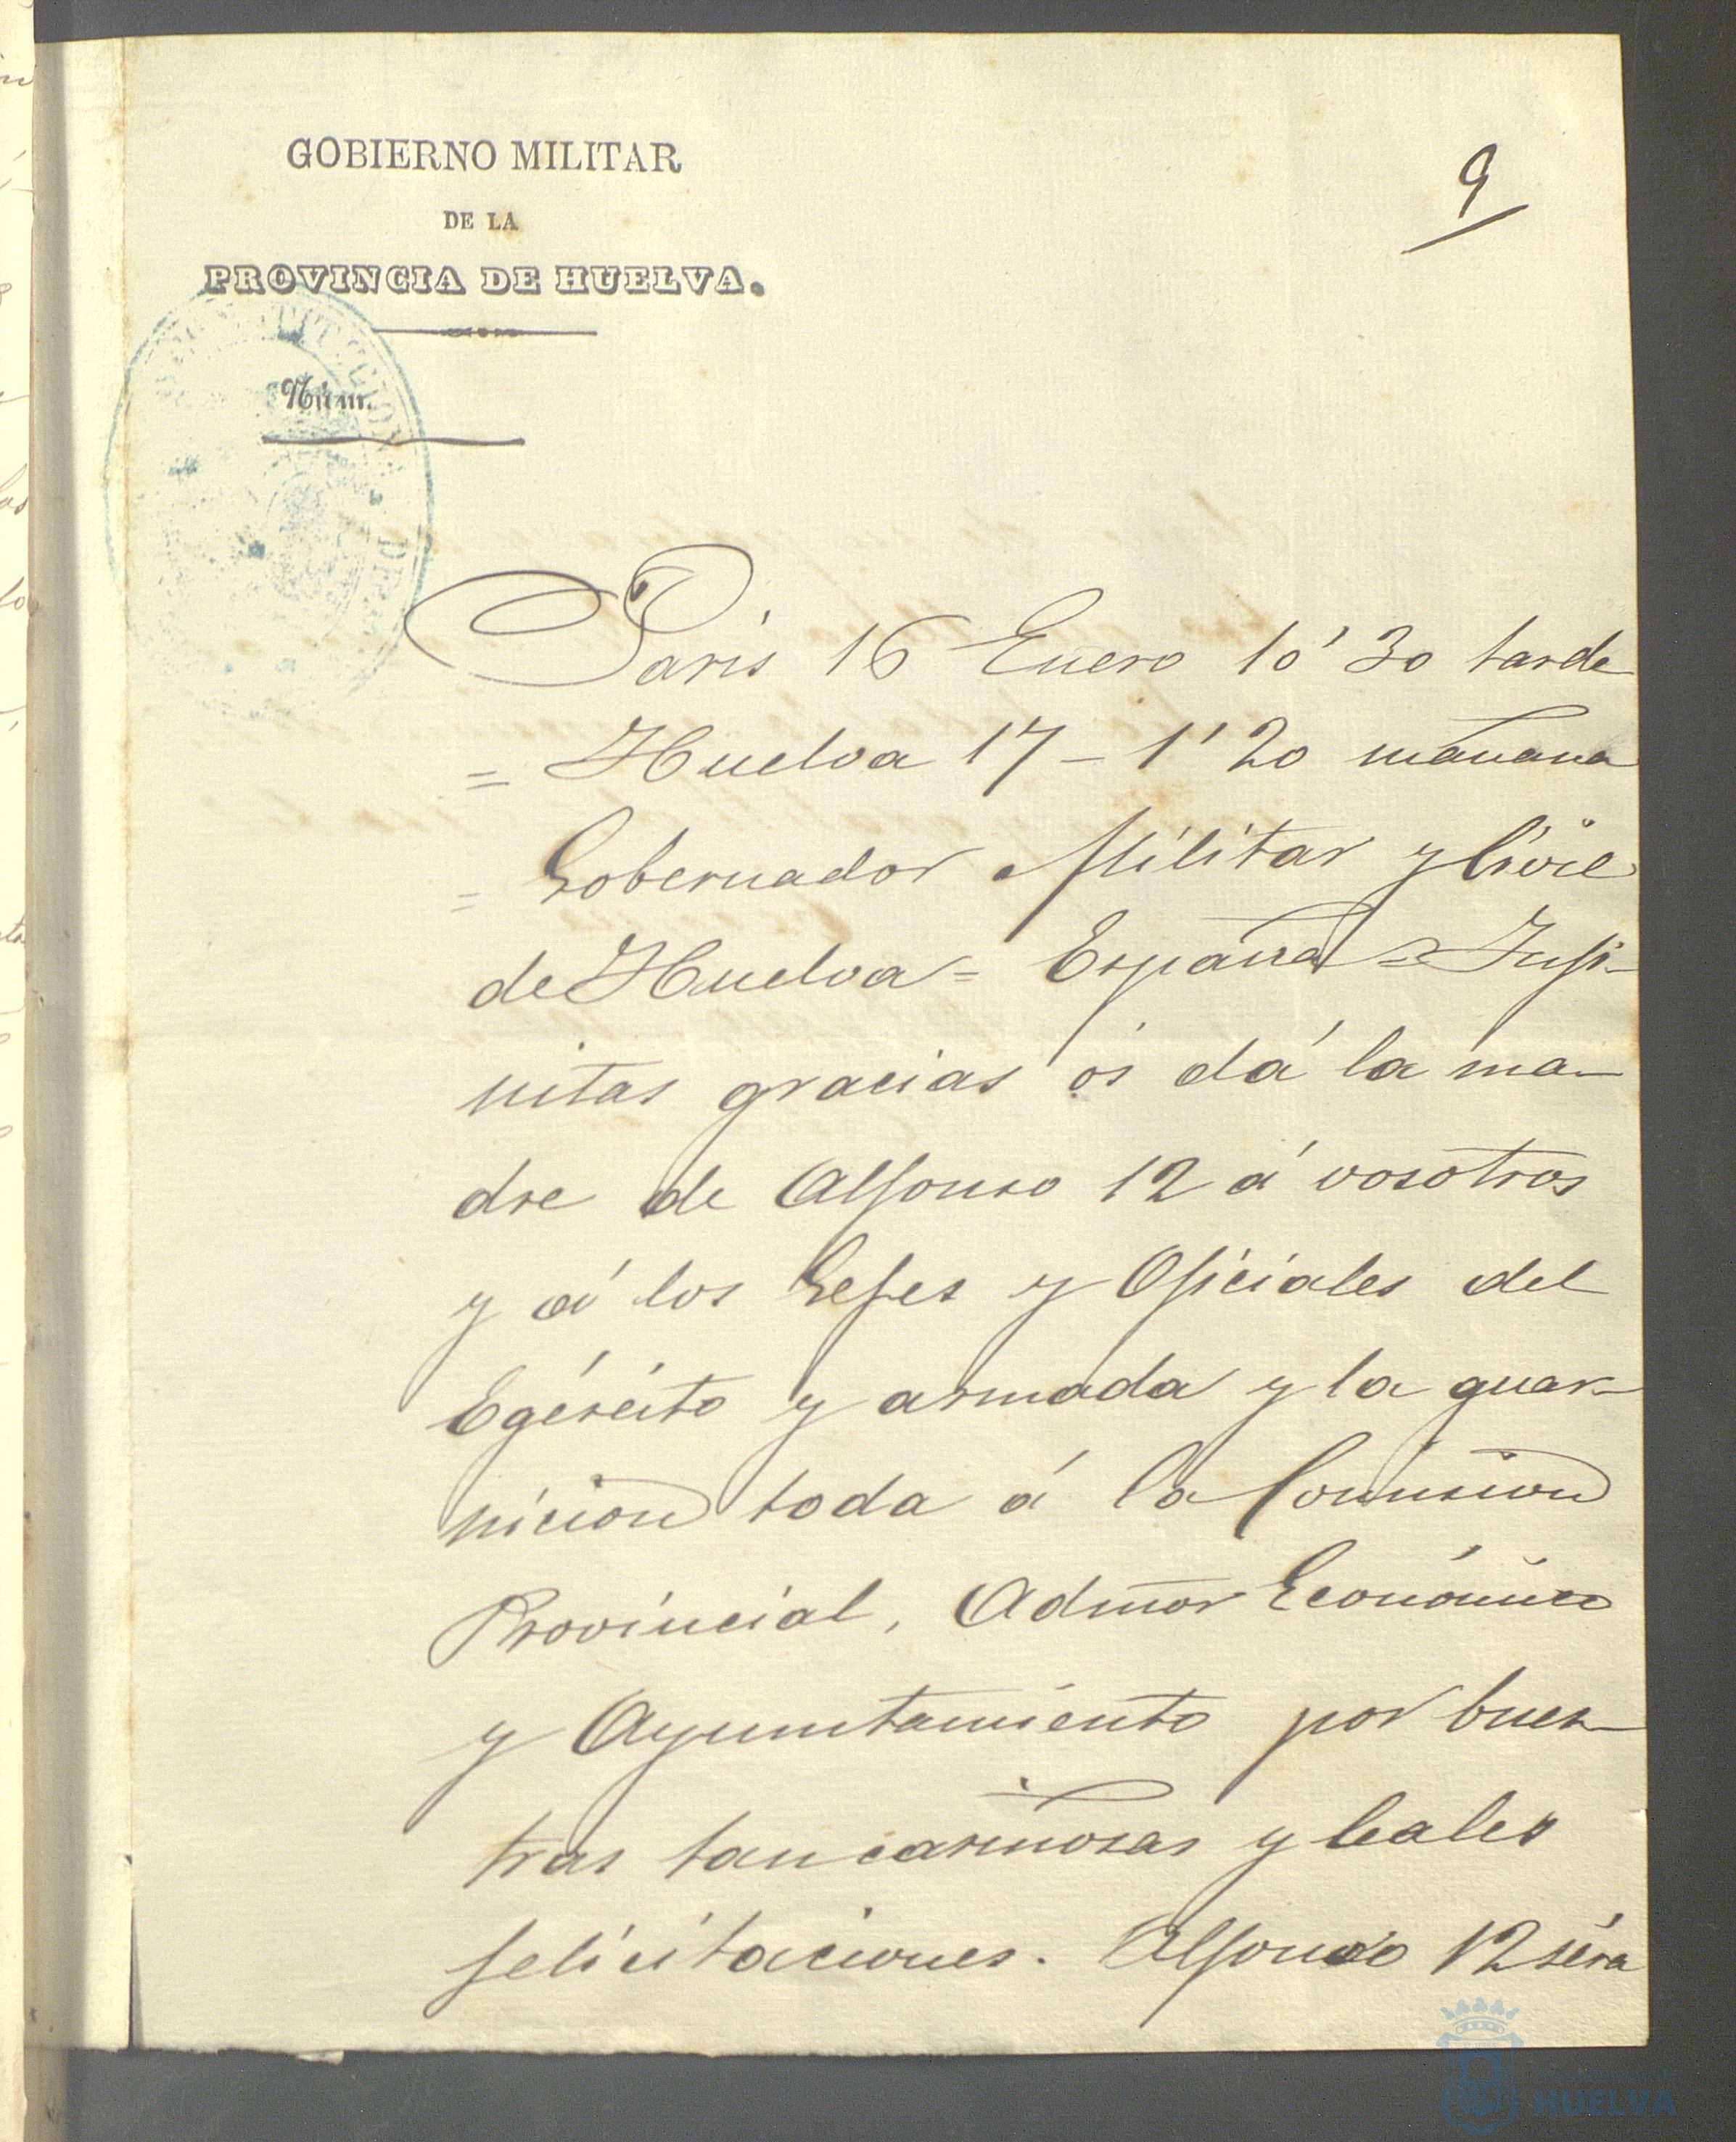 GOBIERNO MILITAR
DE LA
PROVINCIA DE HUELVA.
9
Núm.
Paris 16 Enero 10' 30 tarde
= Huelva 17 - 1' 20 mañana
= Gobernador Militar y Civil
de Huelva = España = Infi-
nitas gracias os dá la ma-
dre de Alfonso 12 á vosotros
y á los Gefes y Oficiales del
Egército y armada y la guar-
nicion toda á la Comision
Provincial, Admor Económico
y Ayuntamiento por bues-
tras tan cariñosas y leales
felicitaciones. Alfonso 12 séra
HUELVA